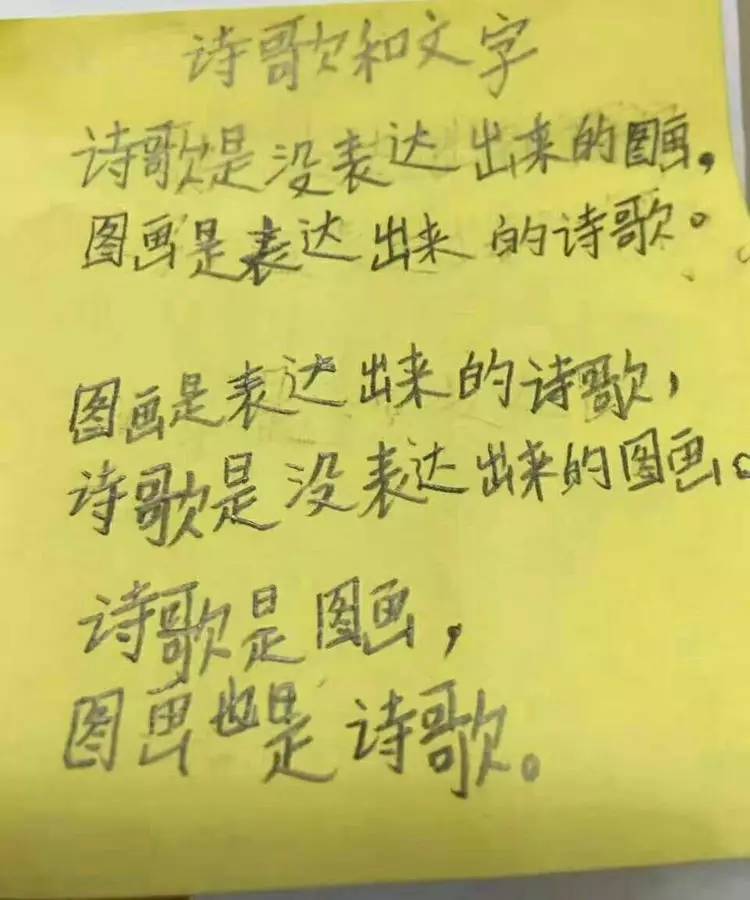 诗歌和文字
诗歌是没表达出来的图画，
图画是表达出来的诗歌。
图画是表达出来的诗歌，
诗歌是没表达出来的图画。
诗歌是图画，
图画也是诗歌。